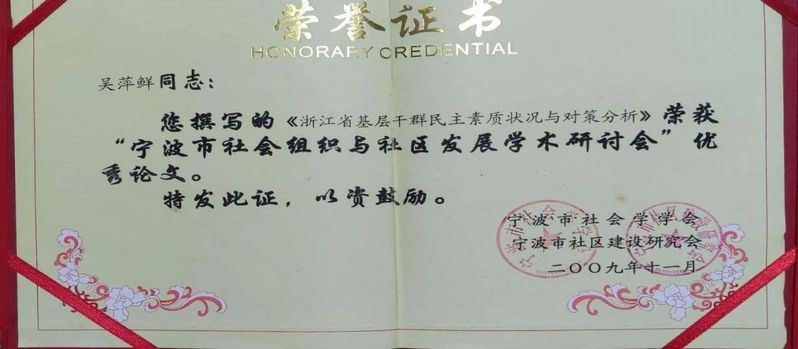 荣誉证书
HONORARY CREDENTIAL
吴萍鲜同志：
您撰写的《浙江省基层干群民主素质状况与对策分析》荣获
“宁波市社会组织与社区发展学术研讨会”优
秀论文。
特发此证，以资鼓励。
宁波市社会学学会
宁波市社区建设研究会
二〇〇九年十一月